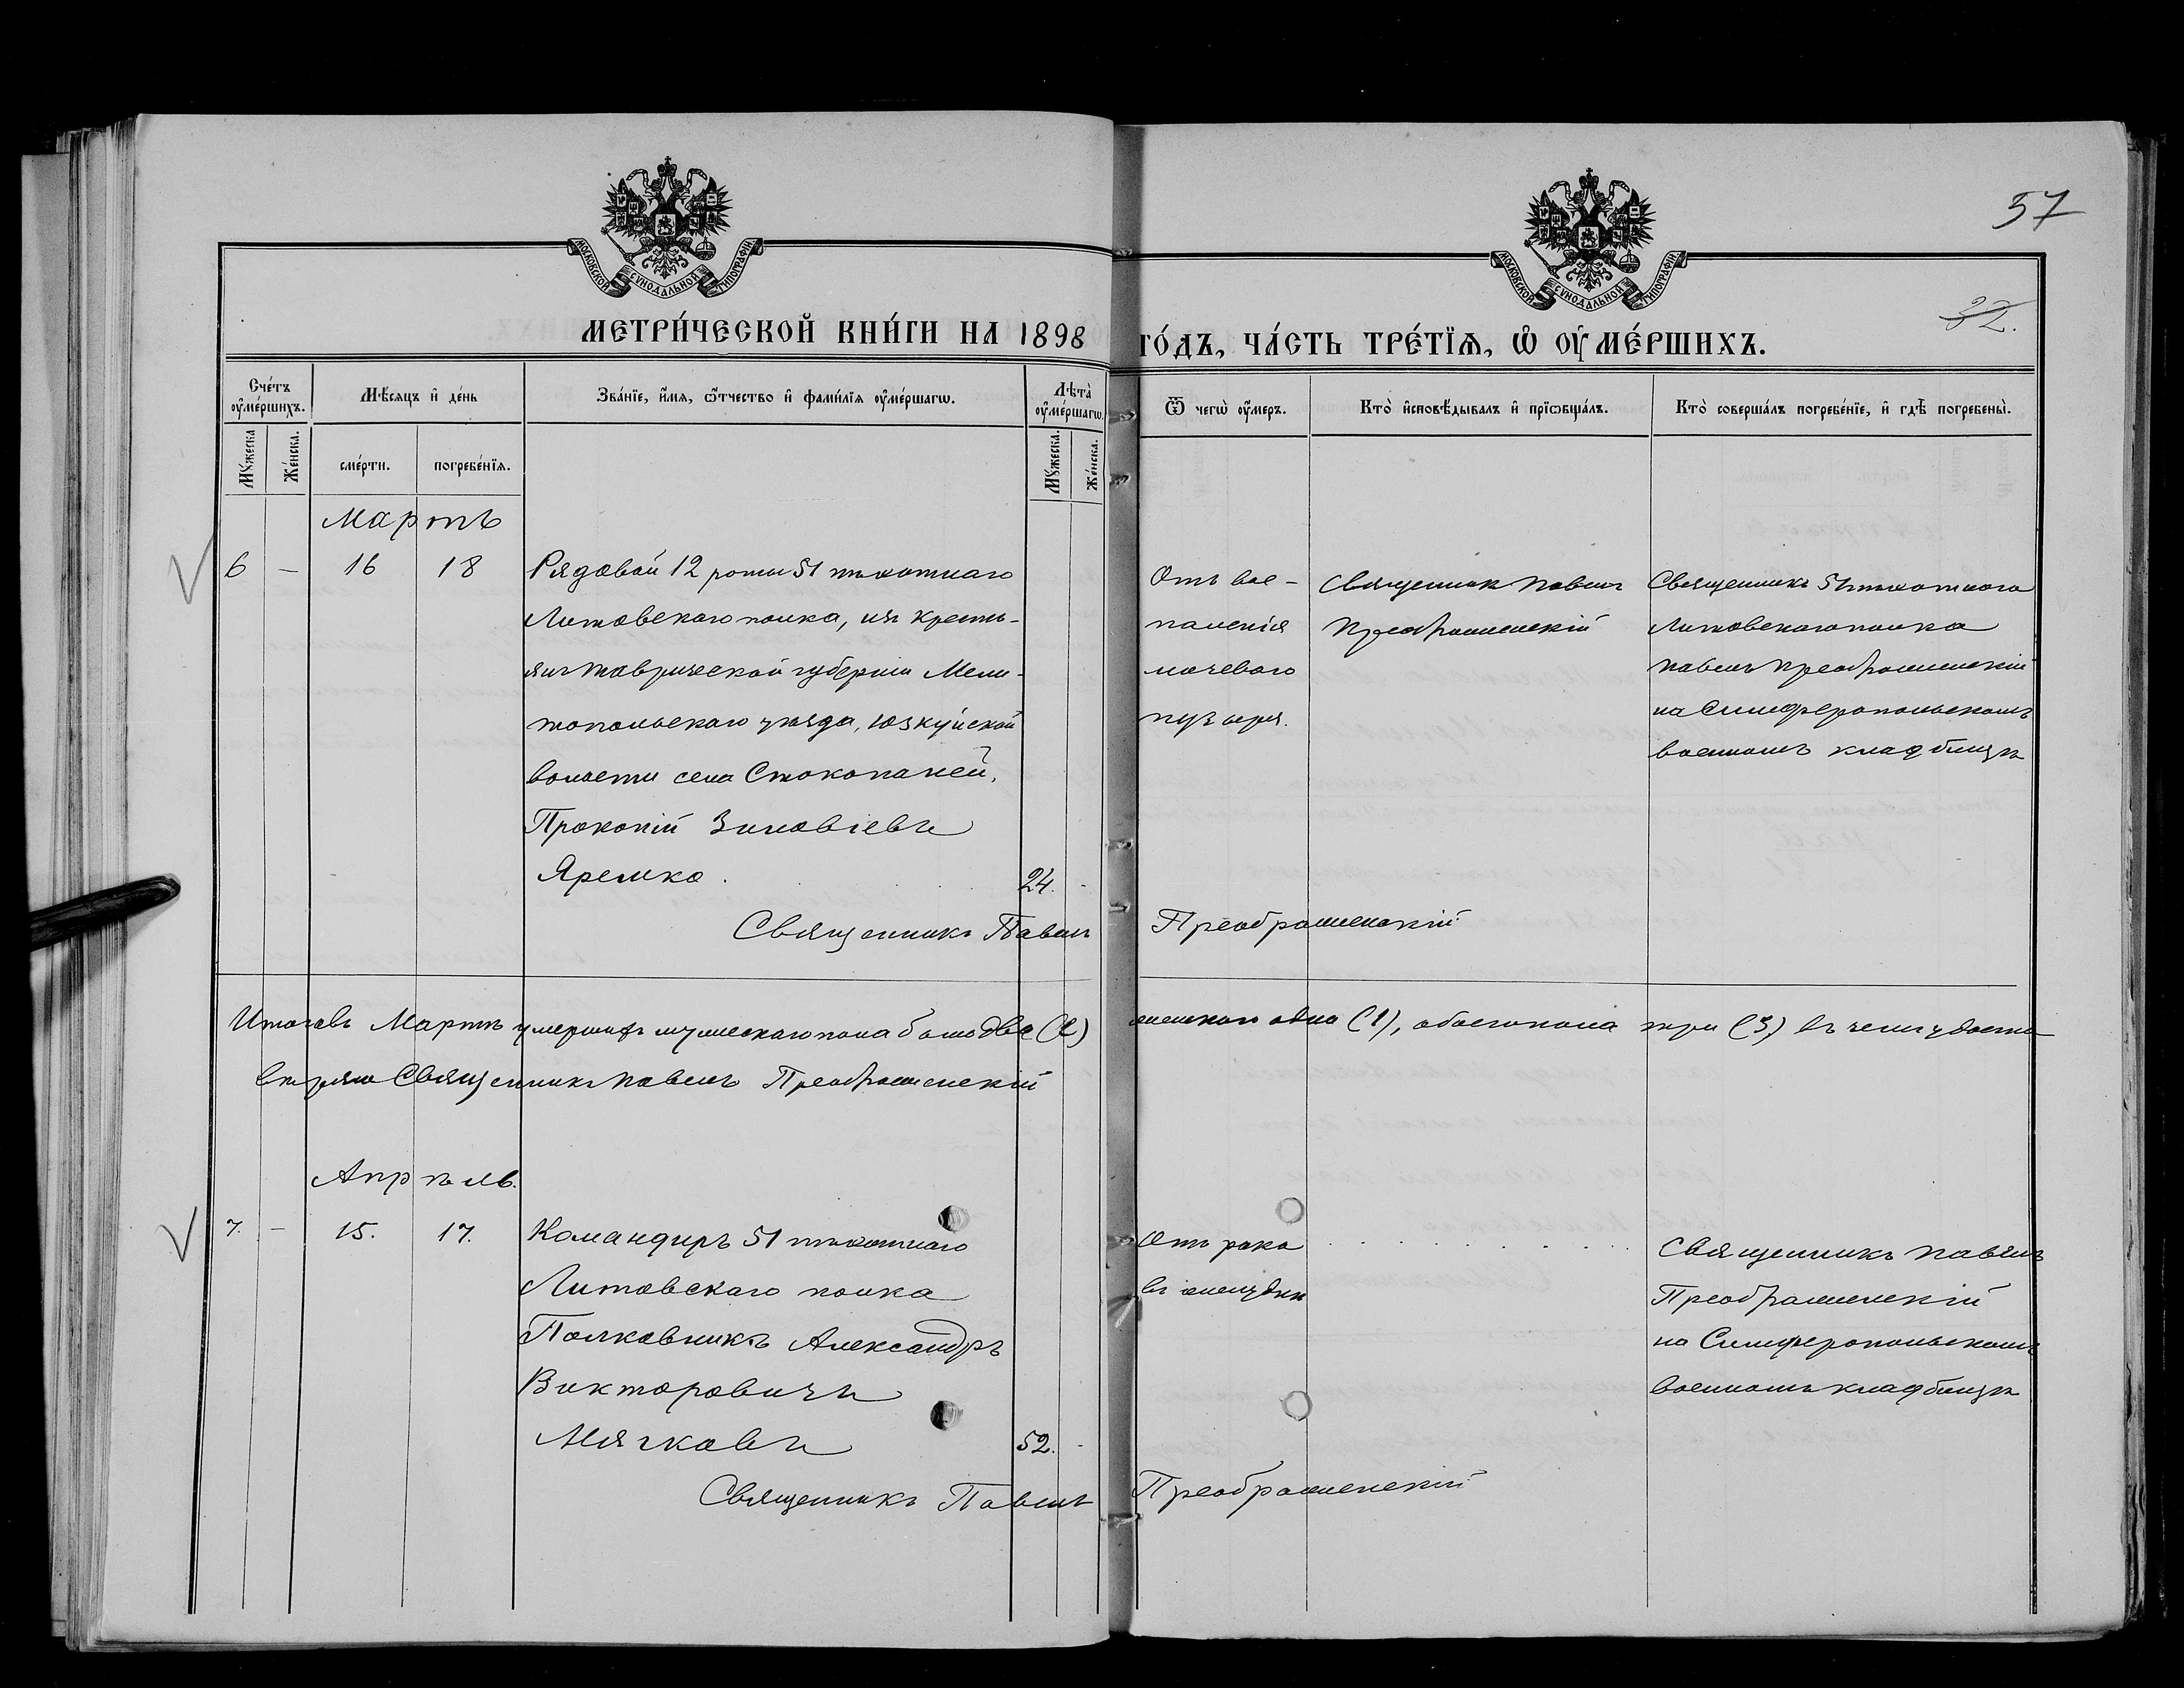 МОСКОВСКОЙ СѴНОДАЛЬНОЙ ТИПОГРАФІИ
МОСКОВСКОЙ СѴНОДАЛЬНОЙ ТИПОГРАФІИ
57
32.
МЕТРИ́ЧЕСКОЙ КНИ́ГИ НА 1898 ГО́ДЪ, ЧА́СТЬ ТРЕ́ТЇѦ, Ѡ ОУ҆МЕ́РШИХЪ.
Сче́тъ оу҆ме́ршихъ.
Мѣ́сяцъ и҆ де́нь
Зва́нїе, и҆́мя, ѻ҆́тчество и҆ фами́лїя оу҆ме́ршагѡ.
Лѣта̀ оу҆ме́ршагѡ.
Ѿ чегѡ̀ оу҆́меръ.
Кто̀ и҆сповѣ́дывалъ и҆ прїѡбща́лъ.
Кто̀ соверша́лъ погребе́нїе, и҆ гдѣ̀ погребены̀.
Мꙋ́жеска
Же́нска.
сме́рти.
погребе́нїя.
Мꙋ́жеска.
Же́нска.
Мартъ
6 — 16 18 Рядовой 12 роты 51 пѣхотнаго
Литовскаго полка, изъ кресть-
янъ Таврической губерніи Мели-
топольскаго уѣзда, Юзкуйской
волости села Стокопаней,
Прокопій Зиновіевъ
Яремко. 24. -
Отъ вос-
паленія
мочеваго
пузыря.
Священник Павелъ
Преображенскій
Священникъ 51 пѣхотнаго
Литовскаго полка
Павелъ Преображенскій
на Симферопольскомъ
военномъ кладбищѣ
Священникъ Павелъ Преображенскій
Итого въ Мартѣ умершихъ мужескаго пола было два (2) женскаго одна (1), обоего пола три (3) въ чемъ удосто-
вѣряю Священникъ Павелъ Преображенскій
Апрѣль.
7. — 15. 17. Командиръ 51 пѣхотнаго
Литовскаго полка
Полковникъ Александръ
Викторовичъ
Мягковъ 52. -
Отъ рака
въ желудкѣ
Священникъ Павелъ
Преображенскій
на Симферопольскомъ
военномъ кладбищѣ
Священникъ Павелъ Преображенскій